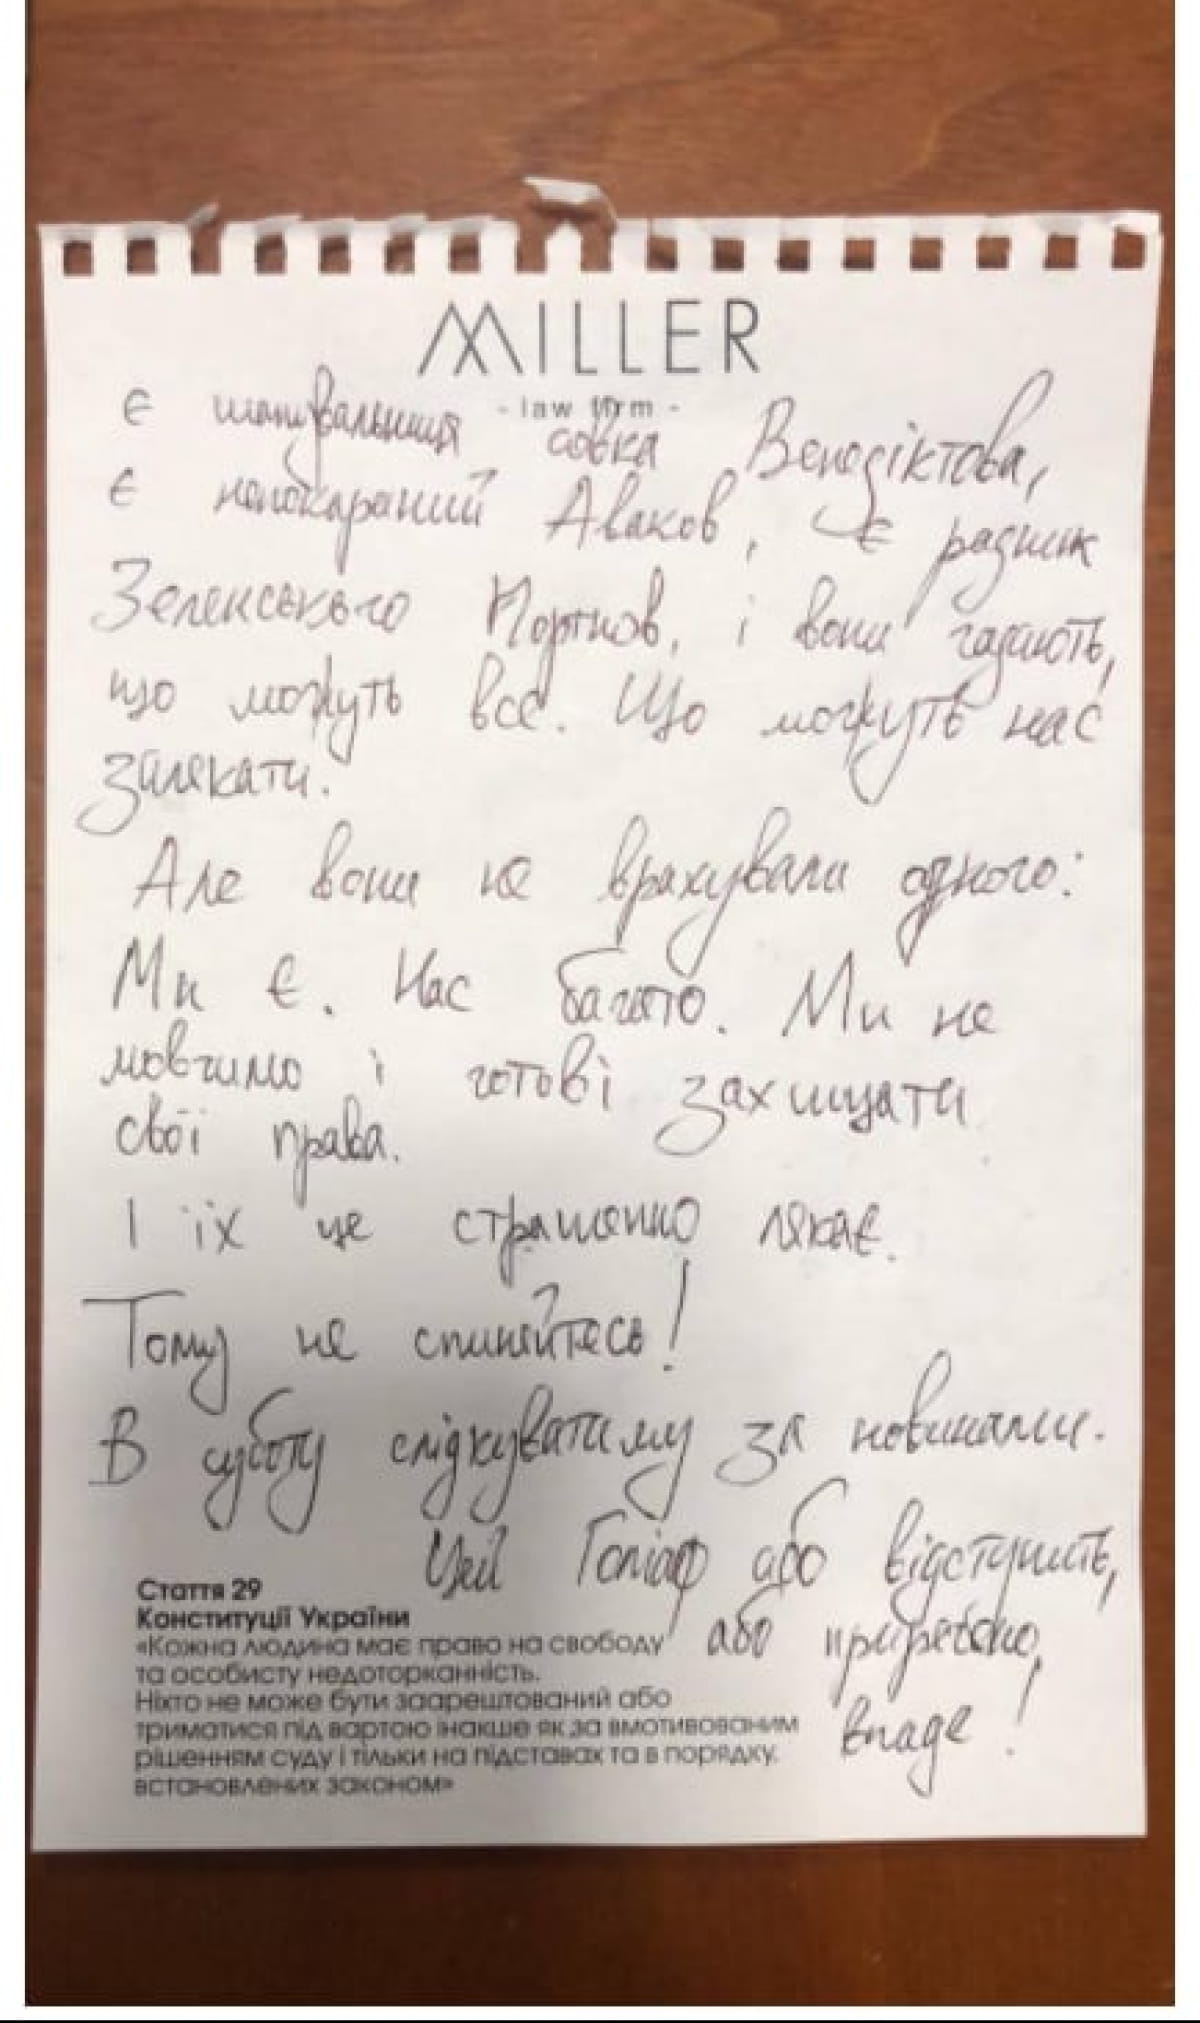 MILLER
- law firm -
Є шанувальниця совка Венедіктова,
є непокараний Аваков, є радник
Зеленського Портнов, і вони гадають,
що можуть все. Що можуть нас
залякати.
Але вони не врахували одного:
Ми Є. Нас багато. Ми не
мовчимо і готові захищати
свої права.
І їх це страшенно лякає.
Тому не спиняйтесь!
В суботу слідкуватиму за новинами.
Цей Голіаф або відступить,
або приречено,
впаде!
Стаття 29
Конституції України
«Кожна людина має право на свободу
та особисту недоторканність.
Ніхто не може бути заарештований або
триматися під вартою інакше як за вмотивованим
рішенням суду і тільки на підставах та в порядку,
встановлених законом»